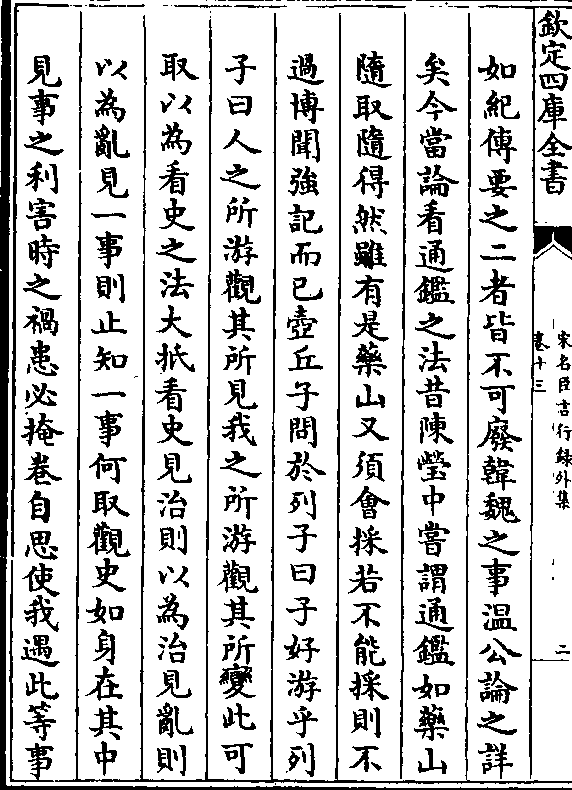 欽定四庫全書
宋名臣言行録外集
卷十三
二
如紀傳要之二者皆不可廢韓魏之事温公論之詳
矣今當論看通鑑之法昔陳瑩中嘗謂通鑑如藥山
隨取隨得然雖有是藥山又須會採若不能採則不
過博聞強記而已壺丘子問於列子曰子好游乎列
子曰人之所游觀其所見我之所游觀其所變此可
取以為看史之法大抵看史見治則以為治見亂則
以為亂見一事則止知一事何取觀史如身在其中
見事之利害時之禍患必掩卷自思使我遇此等事